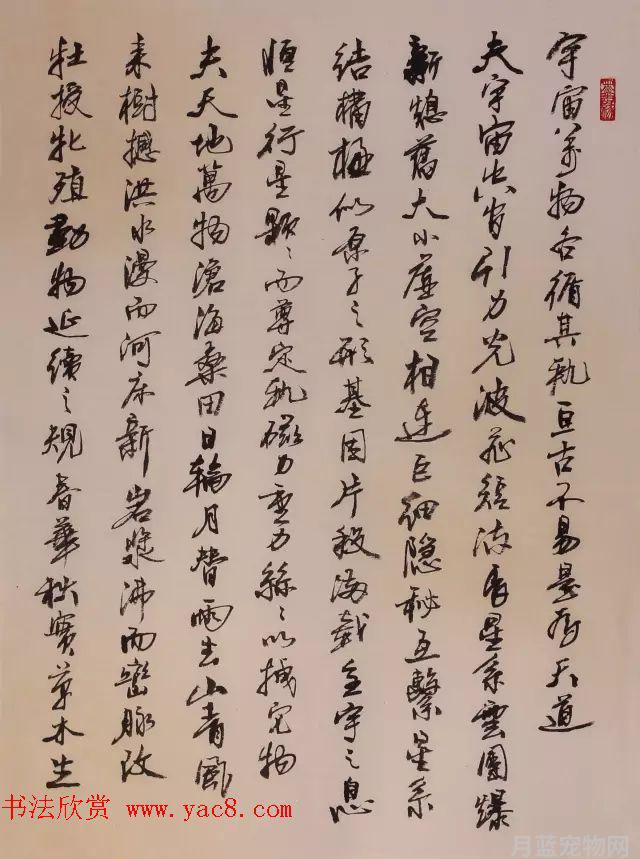 宇宙万物各循其轨亘古不易是为天道
夫宇宙出自引力光波 星系云团爆
新熄旧大小虚空相连巨细隐秘互系星系
结构极似原子之形基因片段满载全宇之息
恒星行星颗々而尊定轨磁力重力丝々以牵宏物
夫天地萬物滄海桑田日輪月替雨去山青風
来樹撼洪水漫而河床新岩漿沸而巒脉改
牡授牝殖動物延續之規春華秋實草木生
书法欣赏 www.yac8.com
月蓝宠物网